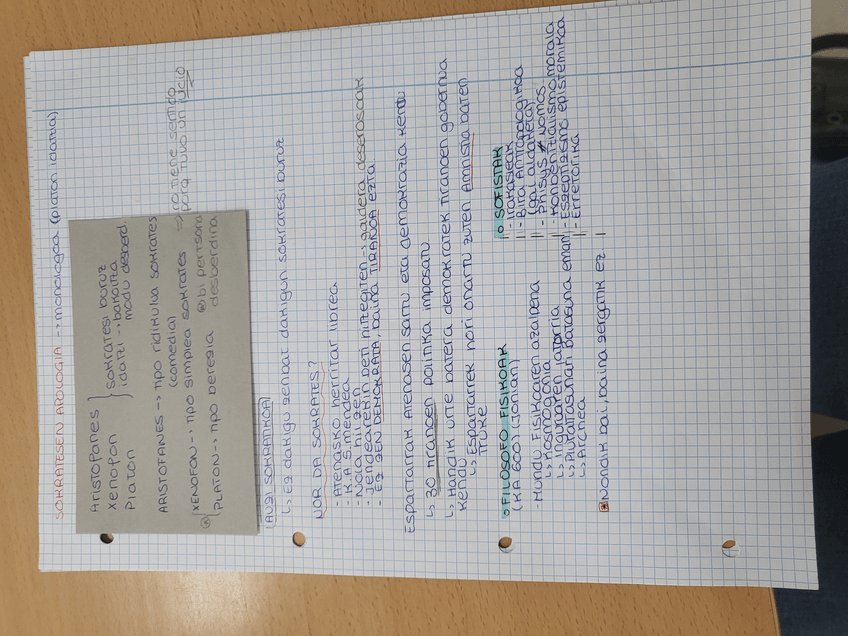 SOKRATESEN APOLOGIA -> monologoa (Platon idatzia)
Aristofanes
Xenofon
Platon
sokratesi buruz
idatzi -> bakoitza
modu desberd.
ARISTOFANES -> tipo ridikulua sokrates
(comedia)
XENOFON -> tipo simplea sokrates
PLATON -> tipo berezia
bi pertsona
desberdina
=> no tiene sentido
porq tuvo un juicio
(AUZI SOKRATIKOA)
↳ Ez dakigu zenbat dakigun sokratesi buruz
NOR DA SOKRATES?
- Atenasko herritar librea
- K.A 5.mendea
- Jendearekin beti hitzegiten -> galdera deserosoak
- EZ ZEN DEMOKRATA, baina TIRANOA EZTA
Espartarrak Atenasen sartu eta demokrazia kendu
↳ 30 tiranoen politika imposatu
↳ Handik urte batera demokratek tiranoen gobernua
kendu
↳ Espartarrek hori onartu zuten Amnistia baten
truke
○ FILOSOFO FISIKOAK
(KA 600) (Jonian)
- Mundu Fisikoaren azalpena
↳ Kosmogonia
↳ Jatorria
↳ Pluraltasunari batasuna eman
↳ Archea
○ SOFISTAK
- Irakasleak
- Bira Antropologikoa
(gai aldaketa)
- Phisys ≠ nomos
- Konbentzialismo morala
- Eszeptizismo epistemikoa
- Erretorika
* Nondik bai, baina zergatik ez